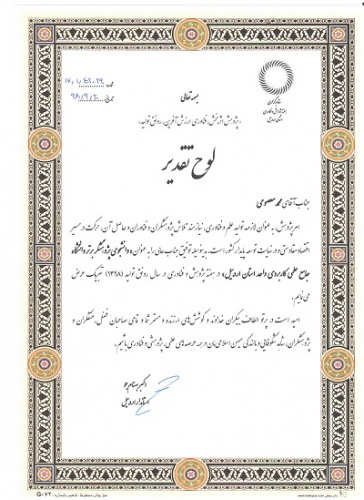 بسمه تعالی
«پژوهش اثربخش، فناوری ارزش آفرین، رونق تولید»
لوح تقدیر
جناب آقای محمد معصومی
امر پژوهش، به عنوان لازمه تولید علم و فناوری، نیازمند تلاش پژوهشگران و فناوران و حاصل آن، حرکت در مسیر
اقتصاد مقاومتی و در نهایت توسعه پایدار کشور است. بدینوسیله توفیق جناب عالی را به عنوان «دانشجوی پژوهشگر برتر دانشگاه
جامع علمی کاربردی واحد استان اردبیل» در هفته پژوهش و فناوری در سال رونق تولید (۱۳۹۸) تبریک عرض
می نمایم.
امید است در پرتو الطاف بیکران خداوند و کوشش های ارزنده و مستمر شما و تمامی صاحبان فضل، متفکران و
پژوهشگران، شاهد شکوفایی و بالندگی میهن اسلامی مان در همه عرصه های علمی، پژوهشی و فناوری باشیم.
اکبر بهنام جو
استاندار اردبیل
G-۰۷۲